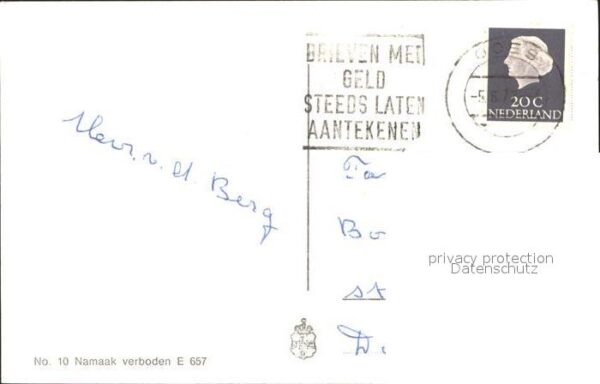 BRIEVEN MET
GELD
STEEDS LATEN
AANTEKENEN
GOES
20 C
NEDERLAND
v. d. Berg
Bo
st
privacy protection
Datenschutz
No. 10 Namaak verboden E 657